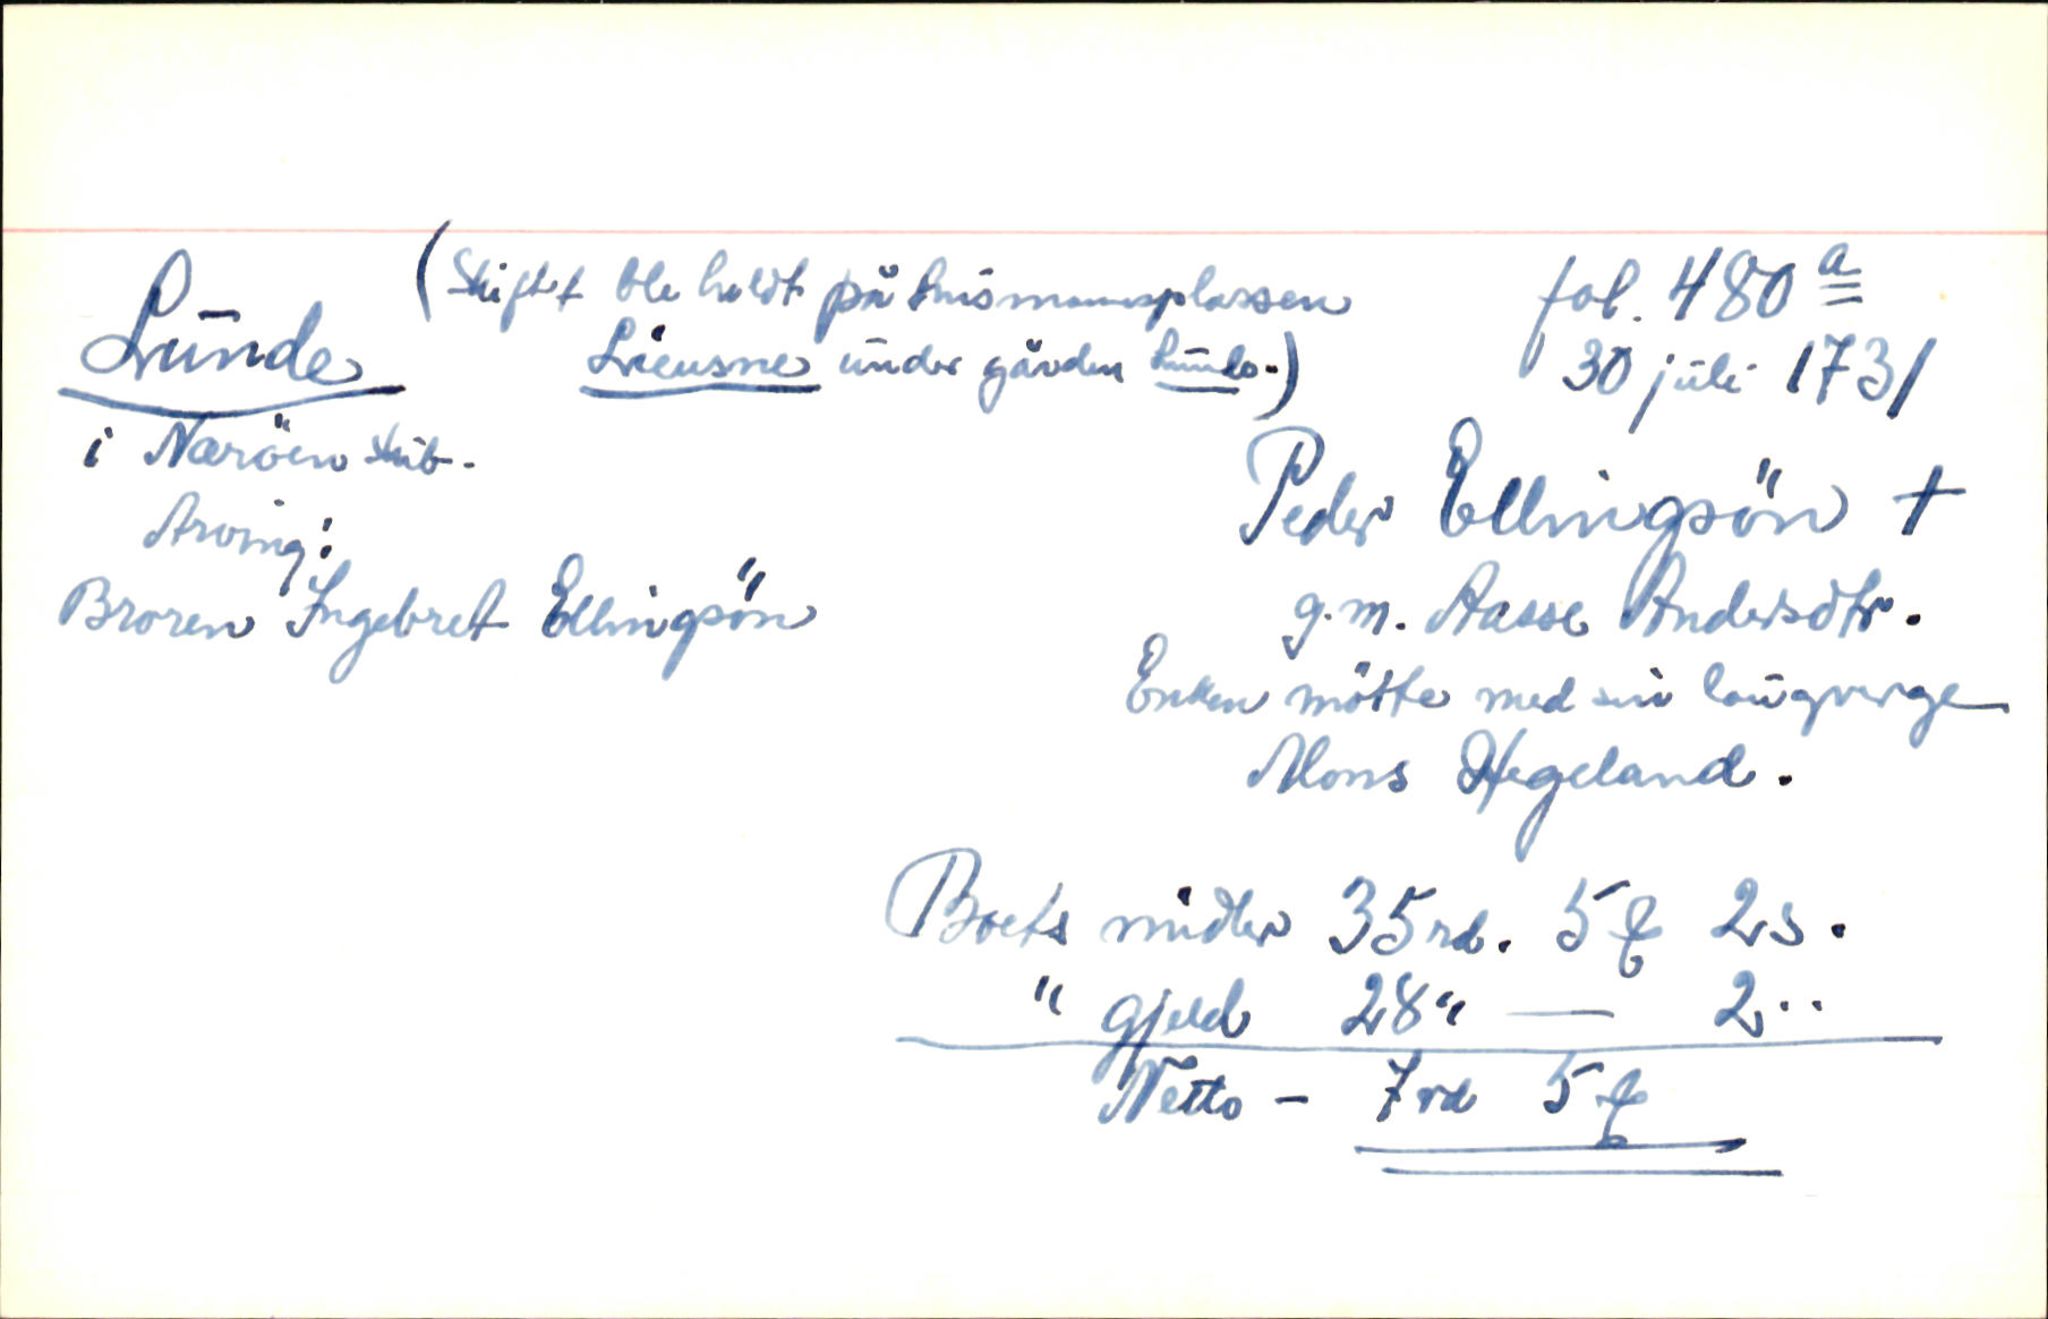 Lunde
(Skiftet ble holdt på husmannsplassen
Lieusne under gården Lunde.)
fol. 480 a
30 juli 1731
i Næröen skib.
Arving:
Broren Ingebret Ellingsön
Peder Ellingsön †
g.m. Aasse Andersdtr.
Enken mötte med sin laugverge
Mons Hegeland.
Boets midler 35 rd. 5 ƒ 2 s.
" gjeld 28 " — 2 ..
Netto - 7 rd 5 ƒ